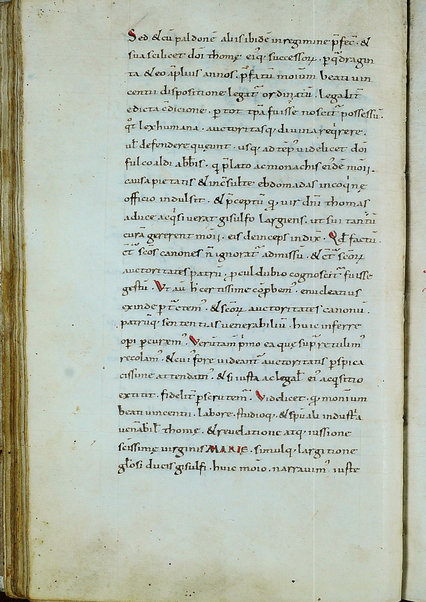 Sed & cu͞ paldone͞ aliis ibide͞ in regimine p͞fec͞. &
sua scilicet do͞ni thome͞ eiq; successor͞. p͞ qdragin
ta. & eo ap͞lius annos. p͞fatu͞ moni͞um beati vin
centii dispositione legat͞ ordinatu͞. Legalit͞
edicta dicione. p͞ tot tp͞a fuisse noscit͞ possessu͞.
qt͞ lex humana. auctoritasq; divina req͞rere.
ul͞ defendere queunt. usq; ad te͞p͞ videlicet do͞ni
fulcoaldi abb͞is. q͞ p͞lato ac monachis eide͞ mo͞n.
causa pietatis & in consulte ebdomadas in coq͞ne͞
officio indulsit. & p͞ceptu͞ q͞ vir dn͞i thomas
a duce acq͞sierat gisulfo largiens. ut sui tant͞u
cura͞ gererent mo͞n. eis deinceps indix͞. Qd͞ factu͞
c͞t scos canones n͞ ignorat͞ admissu͞. & c͞t sco͞r
auctoritates patru͞. p͞cul dubio cognoscit͞ fuisse
gestu͞. Ut au͞ h͞ certissime co͞pbem͞. enucleatius
exinde p͞tc͞tem͞. & sco͞r auctoritates canonu͞.
patru͞q; sententias venerabiliu͞. huic inferre
opi p͞curem͞. Veru͞tam͞ p͞mo ea que sup͞ retulim͞
recolam͞. & cui fore videant͞ auctoritatis p͞spica
cissime attendam͞. & si iusta ac legal͞ ei͞ acq͞sitio
extitit. fidelit͞ p͞scrutem͞. Videlicet. q͞ moni͞um
beati vincentii. labore. studioq;. & sp͞uali industria
venabil͞ thome͞. & revelatione atq; iussione
sc͞issime͞ virginis MARIE. simulq; largitione
gl͞osi ducis gisulfi. huic mo͞io. narravim͞ iuste